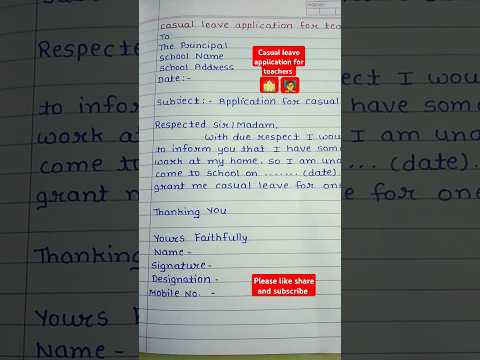 casual leave application for tea
To
The Principal
School Name
School Address
Date:-
Subject:- Application for casual
Respected Sir/Madam,
With due respect I wou
to inform you that I have som
work at my home. so I am una
come to school on ....... (date)
grant me casual leave for one
Thanking You
Yours Faithfully
Name -
Signature -
Designation -
Mobile No. -
Casual leave
application for
teachers
Please like share
and subscribe
Respected
to inform
work at
come to
grant me
Thanking
Yours F
Name -
I wou
have some
I am una
(date).
e for one